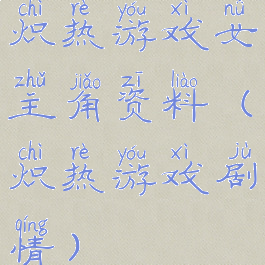 chì rè yóu xì nǚ
炽热游戏女
zhǔ jiǎo zī liào
主角资料(
chì rè yóu xì jù
炽热游戏剧
qíng
情)